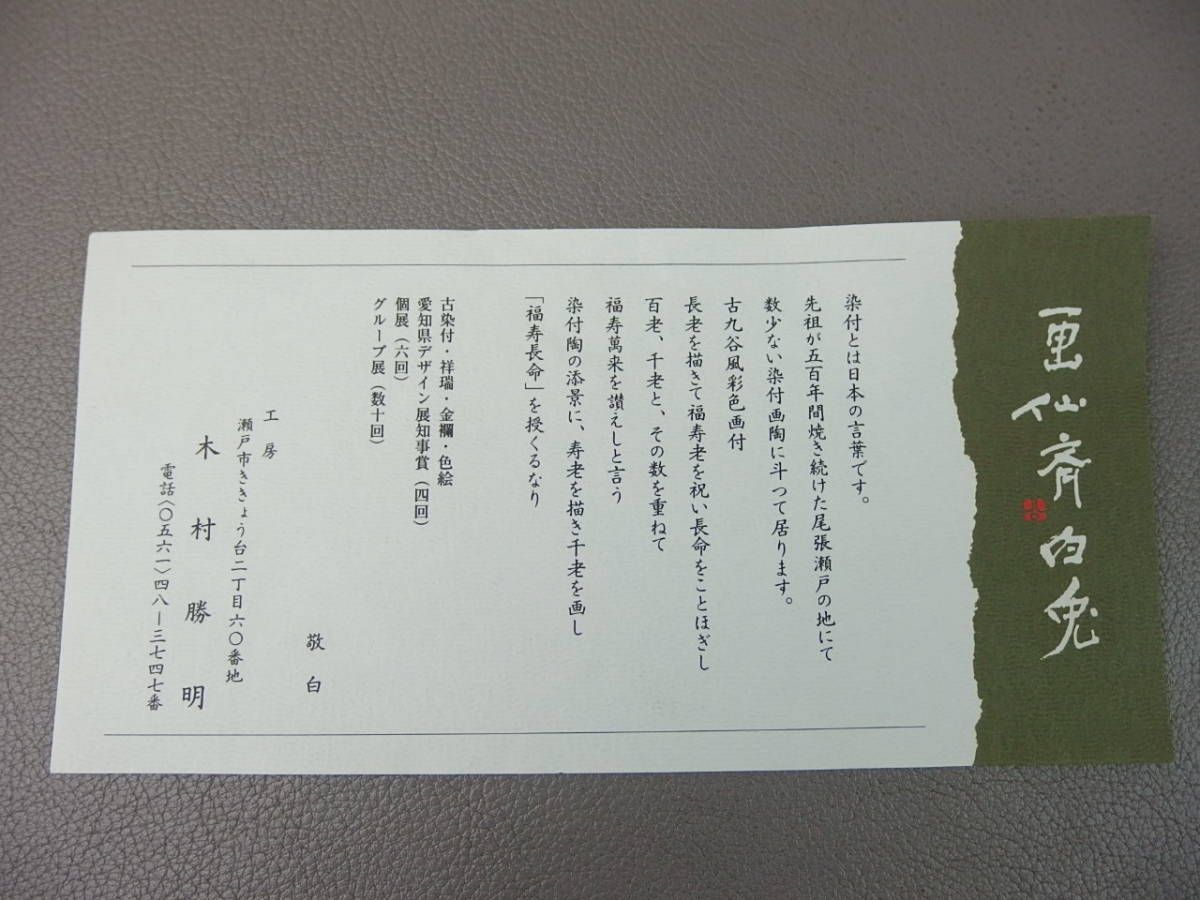 画仙斎白兎
染付とは日本の言葉です。
先祖が五百年間焼き続けた尾張瀬戸の地にて
数少ない染付画陶に斗つて居ります。
古九谷風彩色画付
長老を描きて福寿老を祝い長命をことほぎし
百老、千老と、その数を重ねて
福寿萬来を讃えしと言う
染付陶の添景に、寿老を描き千老を画し
「福寿長命」を授くるなり
古染付・祥瑞・金襴・色絵
愛知県デザイン展知事賞（四回）
個展（六回）
グループ展（数十回）
敬白
工房
瀬戸市ききょう台二丁目六〇番地
木村勝明
電話（〇五六一）四八－三七四七番